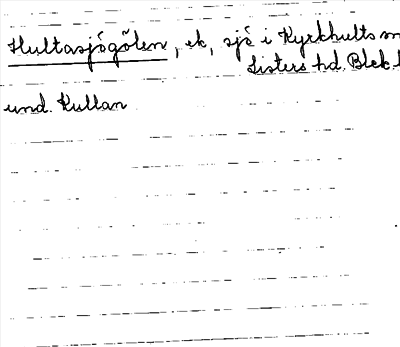 Hultasjögölen, ek, sjö i Kyrkhults
Listers hd. Blek.
und. Kullan